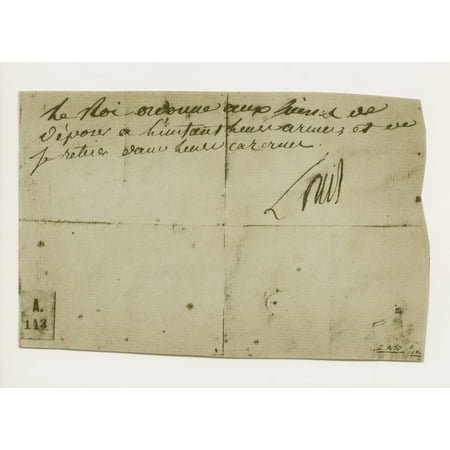 Le Roi ordonne aux Suisses de
déposer à l'instant leurs armes, et de
se retirer dans leurs casernes.
Louis
A.
113